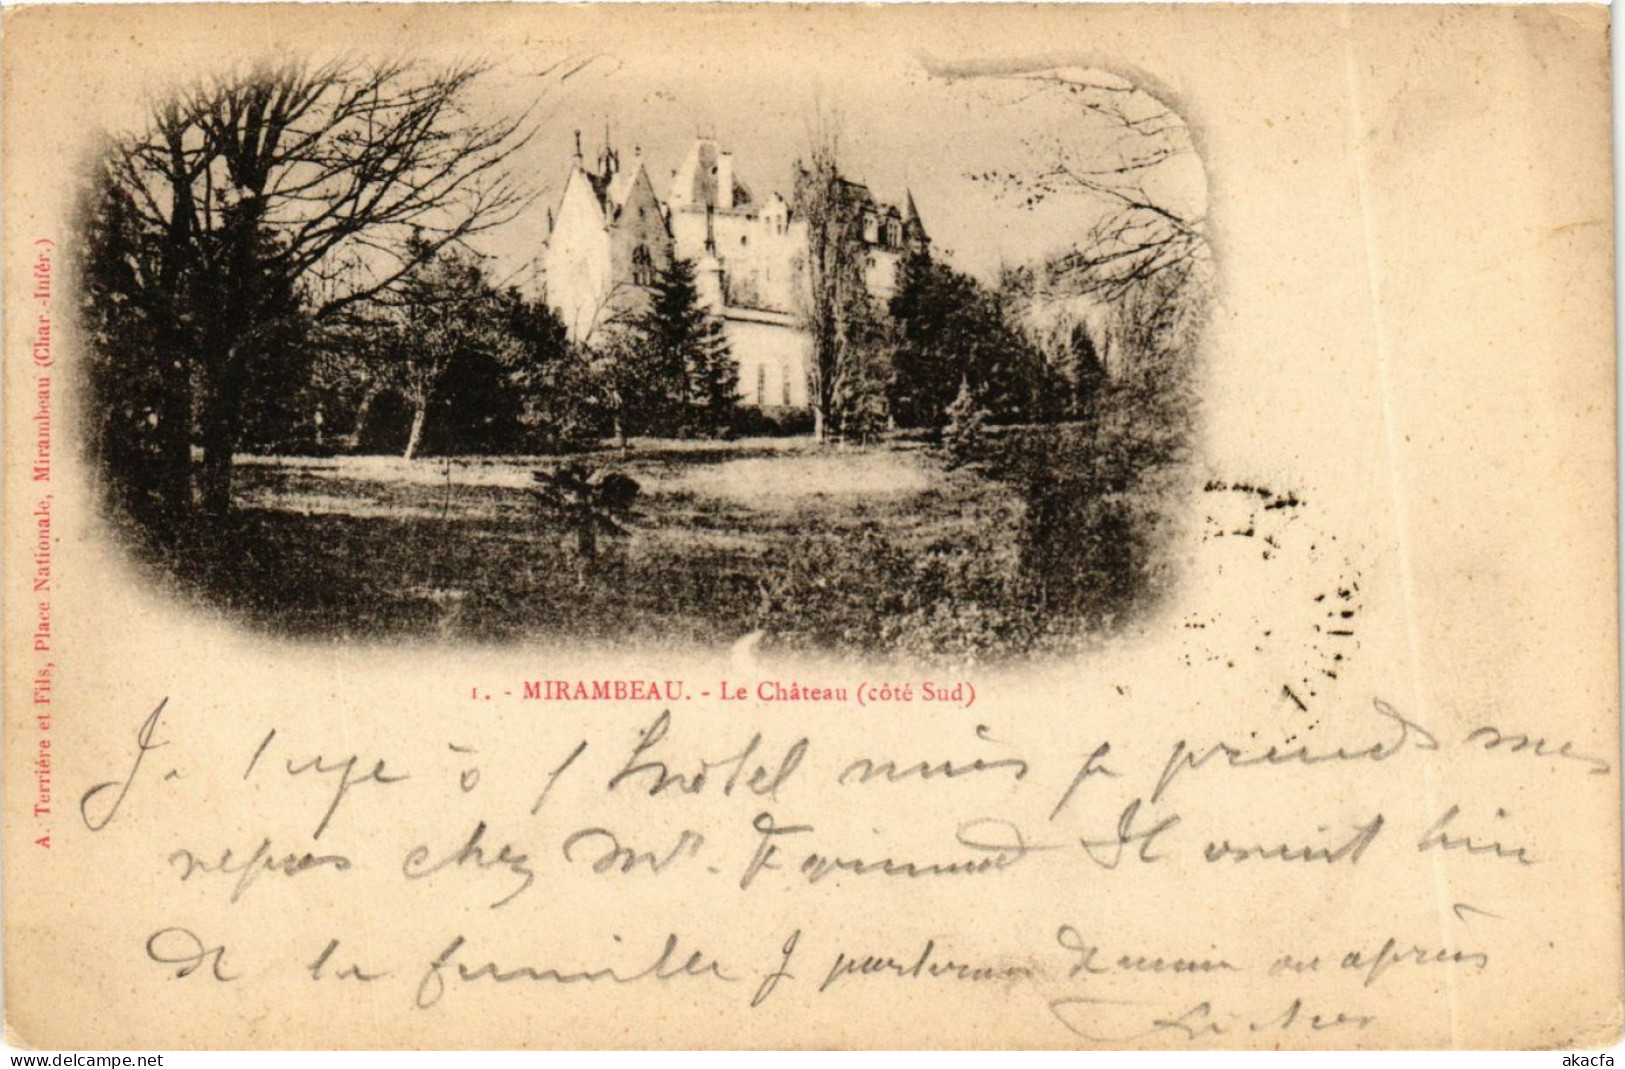 A. Terriére et Fils, Place Nationale, Mirambeau (Char.-Infér.)
1. - MIRAMBEAU. - Le Château (côté Sud)
Je loge à l'hôtel mais je prends mes
repas chez Mr. Il vient bien
de la famille Je partirai demain ou après
akacfa
https://www.delcampe.net